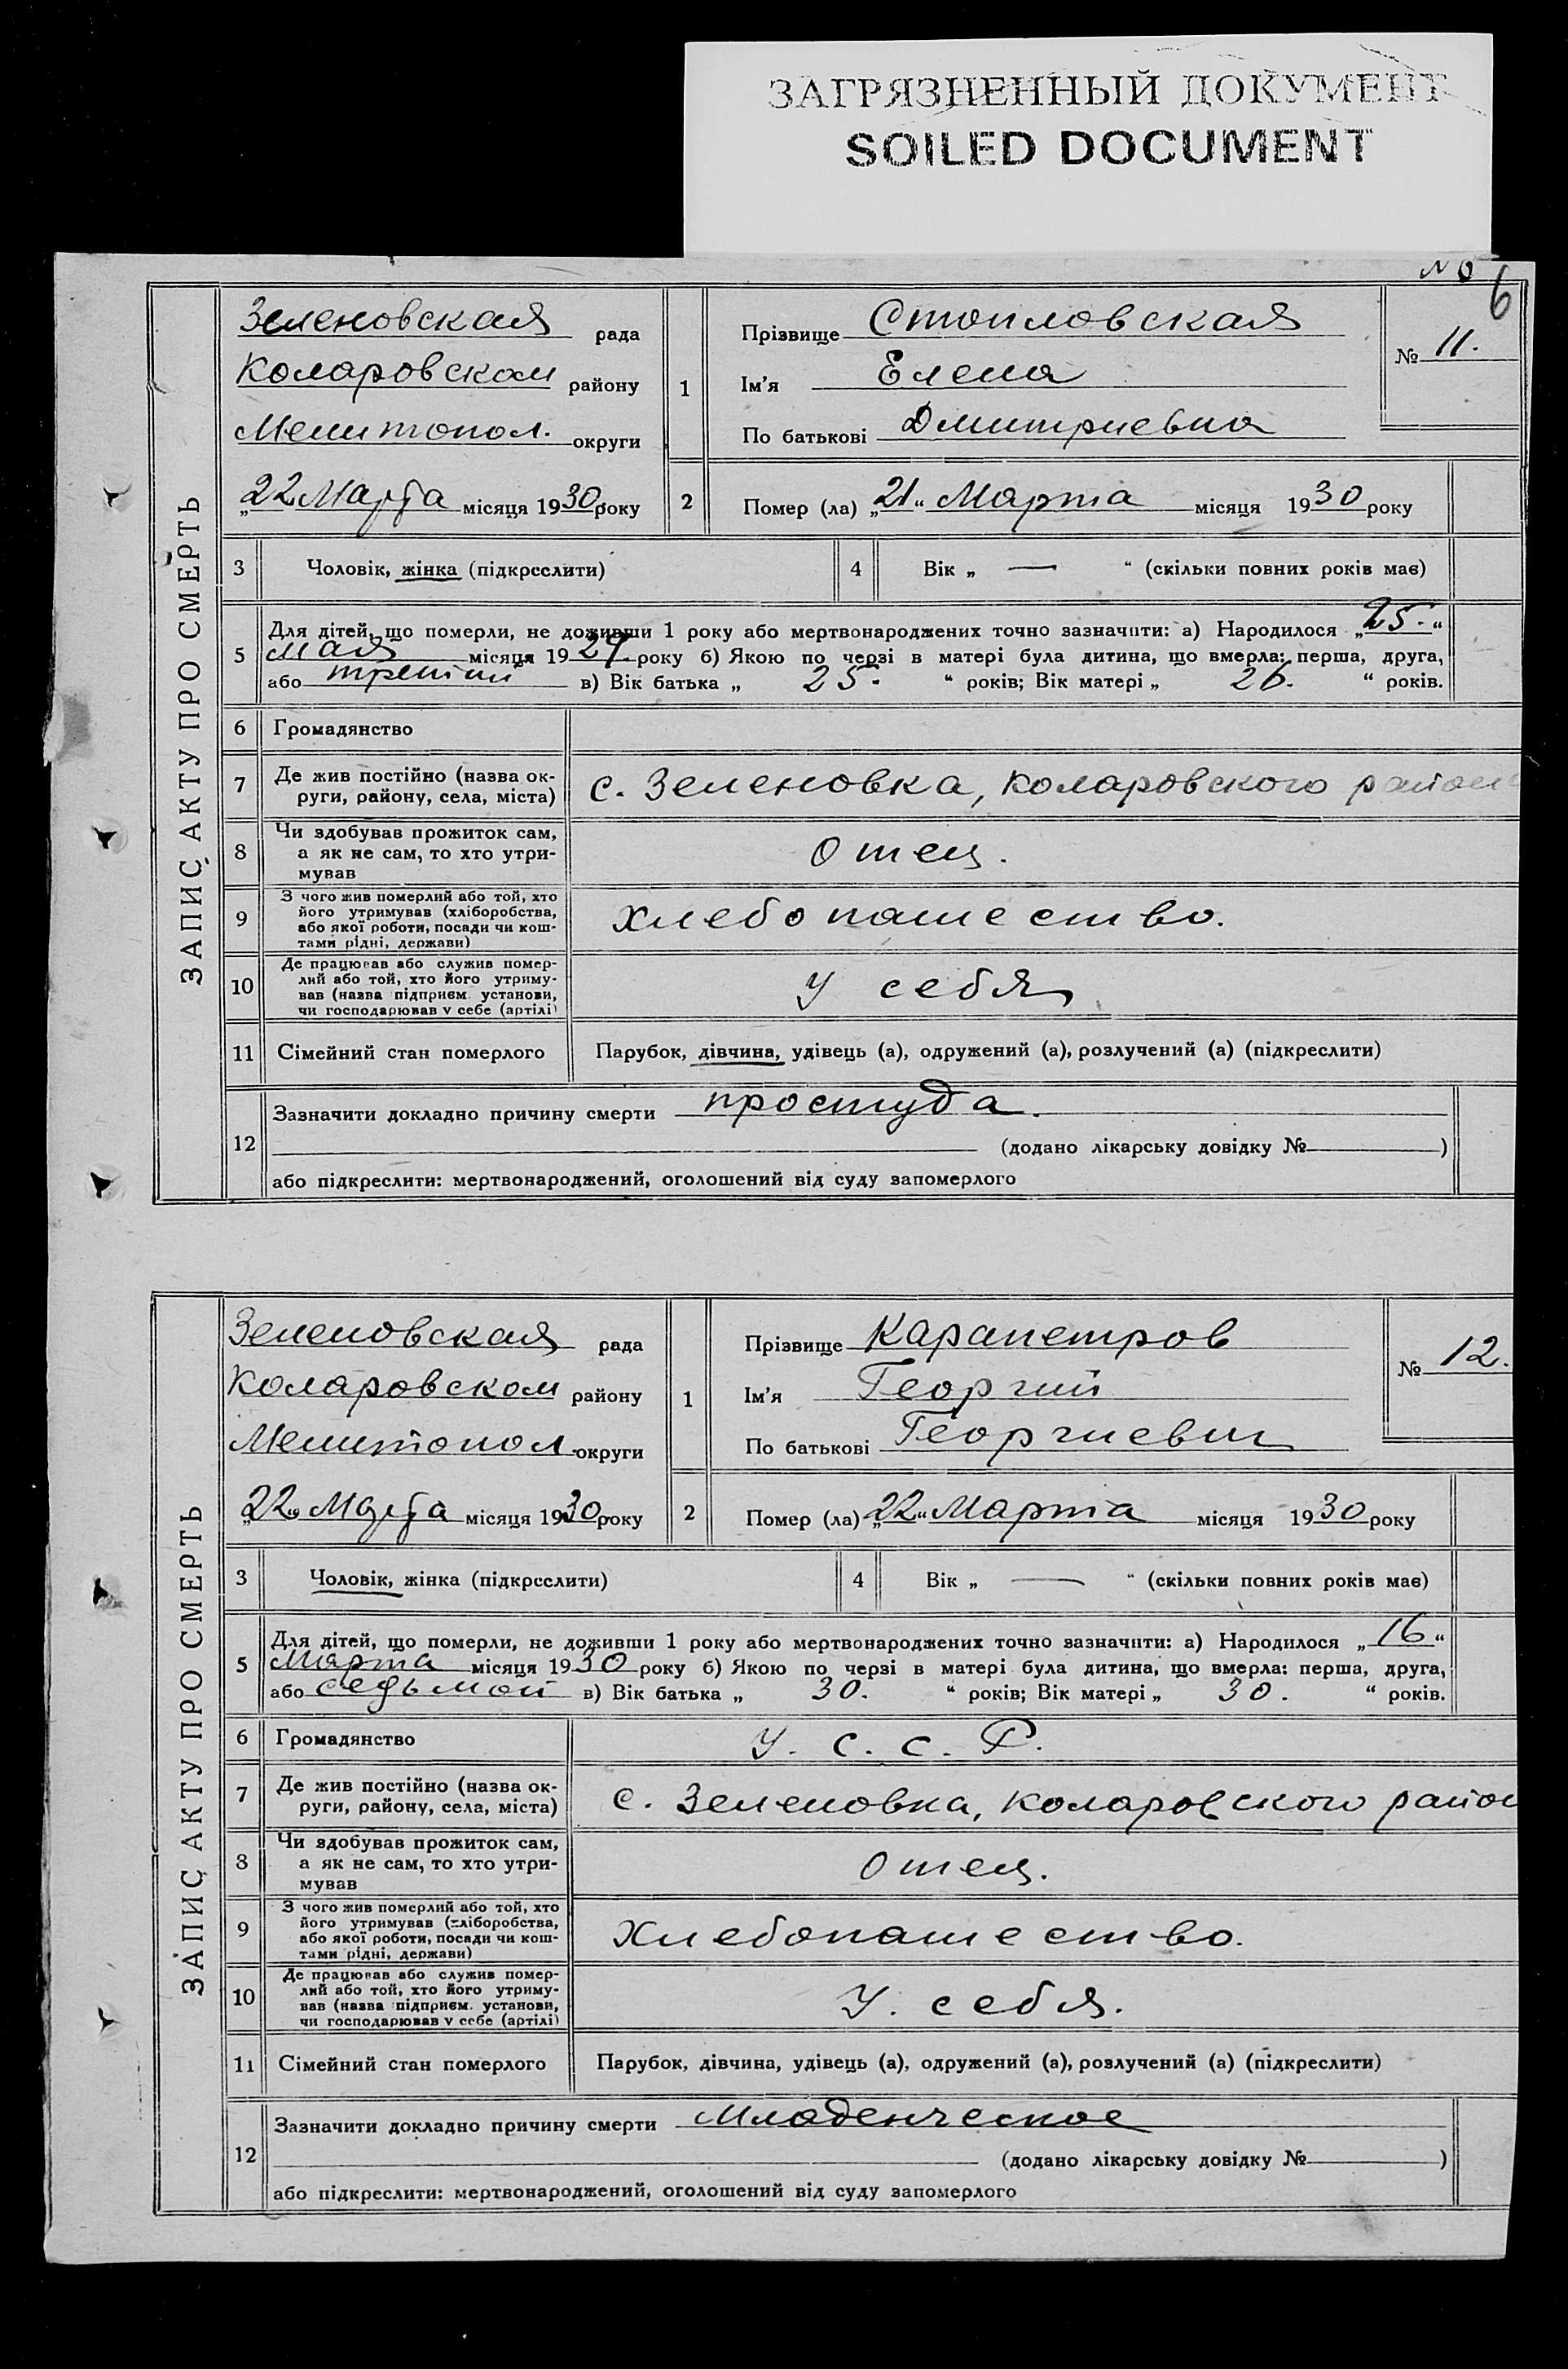 ЗАГРЯЗНЕННЫЙ ДОКУМЕНТ
SOILED DOCUMENT
6
ЗАПИС АКТУ ПРО СМЕРТЬ
Зеленовская рада
Коларовском району
Мелитопол. округи
„22 Марта місяця 1930 року
1 Прізвище Стоиловская
Ім'я Елена
По батькові Дмитриевна
№ 11.
2 Помер (ла) „21“ Марта місяця 1930 року
3 Чоловік, жінка (підкреслити)
4 Вік „ — “ (скільки повних років має)
5 Для дітей, що померли, не доживши 1 року або мертвонароджених точно зазначити: а) Народилося „25.“
мая місяця 1929 року б) Якою по черзі в матері була дитина, що вмерла: перша, друга,
або третий в) Вік батька „ 25. “ років; Вік матері „ 26. “ років.
6 Громадянство
7 Де жив постійно (назва ок-
руги, району, села, міста)
с. Зеленовка, Коларовского район
8 Чи здобував прожиток сам,
а як не сам, то хто утри-
мував
Отец.
9 З чого жив померлий або той, хто
його утримував (хліборобства,
або якої роботи, посади чи кош-
тами рідні, держави)
Хлебопашество.
10 Де працював або служив помер-
лий або той, хто його утриму-
вав (назва підприєм. установи,
чи господарював у себе (артілі)
У себя
11 Сімейний стан померлого
Парубок, дівчина, удівець (а), одружений (а), розлучений (а) (підкреслити)
12 Зазначити докладно причину смерти простуда.
(додано лікарську довідку № )
або підкреслити: мертвонароджений, оголошений від суду запомерлого
ЗАПИС АКТУ ПРО СМЕРТЬ
Зеленовская рада
Коларовском району
Мелитопол. округи
„22„ Марта місяця 1930 року
1 Прізвище Карапетров
Ім'я Георгий
По батькові Георгиевич
№ 12.
2 Помер (ла) „22“ Марта місяця 1930 року
3 Чоловік, жінка (підкреслити)
4 Вік „ — “ (скільки повних років має)
5 Для дітей, що померли, не доживши 1 року або мертвонароджених точно зазначити: а) Народилося „16“
Марта місяця 1930 року б) Якою по черзі в матері була дитина, що вмерла: перша, друга,
або седьмой в) Вік батька „ 30. “ років; Вік матері „ 30. “ років.
6 Громадянство
У. С. С. Р.
7 Де жив постійно (назва ок-
руги, району, села, міста)
с. Зеленовка, Коларовского район
8 Чи здобував прожиток сам,
а як не сам, то хто утри-
мував
Отец.
9 З чого жив померлий або той, хто
його утримував (хліборобства,
або якої роботи, посади чи кош-
тами рідні, держави)
Хлебопашество.
10 Де працював або служив помер-
лий або той, хто його утриму-
вав (назва підприєм. установи,
чи господарював у себе (артілі)
У. себя.
11 Сімейний стан померлого
Парубок, дівчина, удівець (а), одружений (а), розлучений (а) (підкреслити)
12 Зазначити докладно причину смерти Младенческое
(додано лікарську довідку № )
або підкреслити: мертвонароджений, оголошений від суду запомерлого